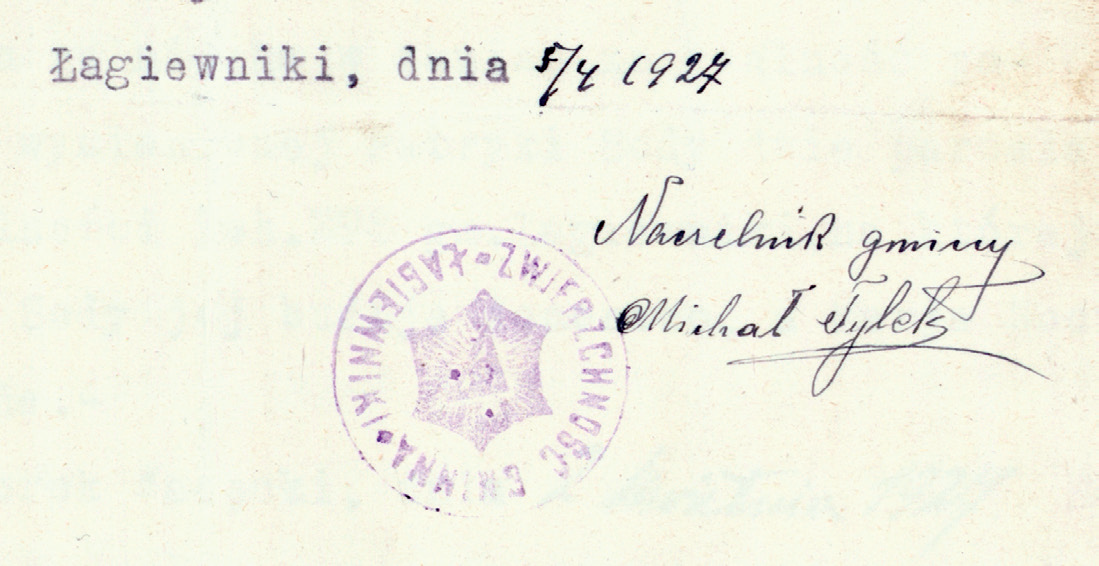 Łagiewniki, dnia 5/4 1927
Naczelnik gminy
Michał Tylek
ZWIERZCHNOŚĆ GMINNA ŁAGIEWNIKI